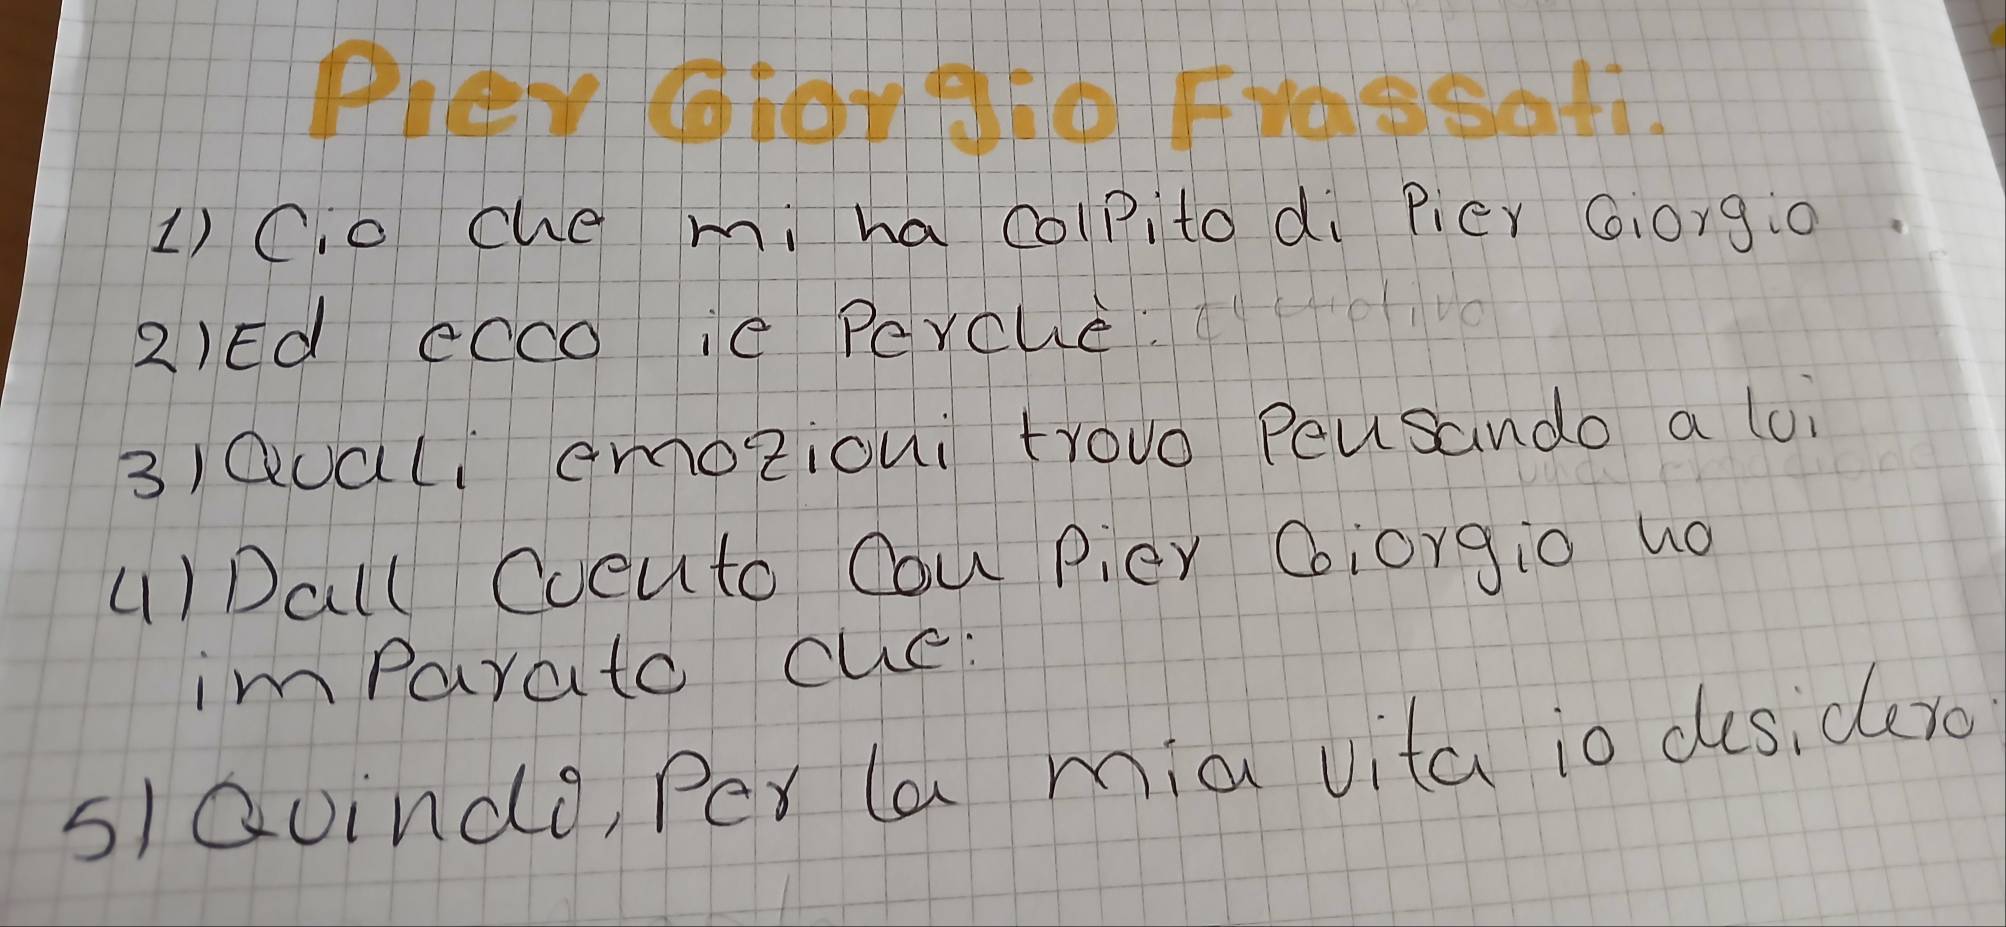 Pier Giorgio Frassati.
1) Cio che mi ha colpito di Pier Giorgio.
2) Ed ecco ie perchè:
3) Quali emozioni trovo pensando a lui
4) Dall Cuento con Pier Giorgio ho
imparato che:
5) Quindi, per la mia vita io desidero